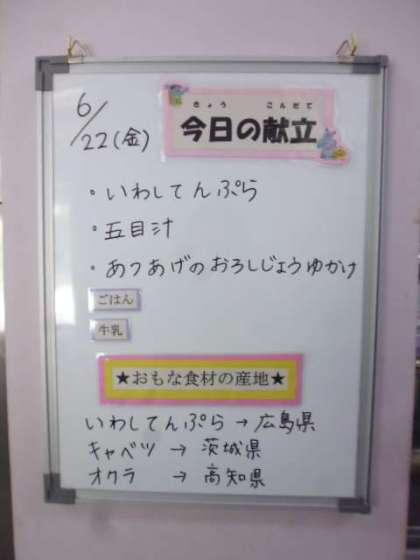 6/22(金)
きょう こんだて
今日の献立
・いわしてんぷら
・五目汁
・あつあげのおろしじょうゆかけ
ごはん
牛乳
★おもな食材の産地★
いわしてんぷら→広島県
キャベツ → 茨城県
オクラ → 高知県